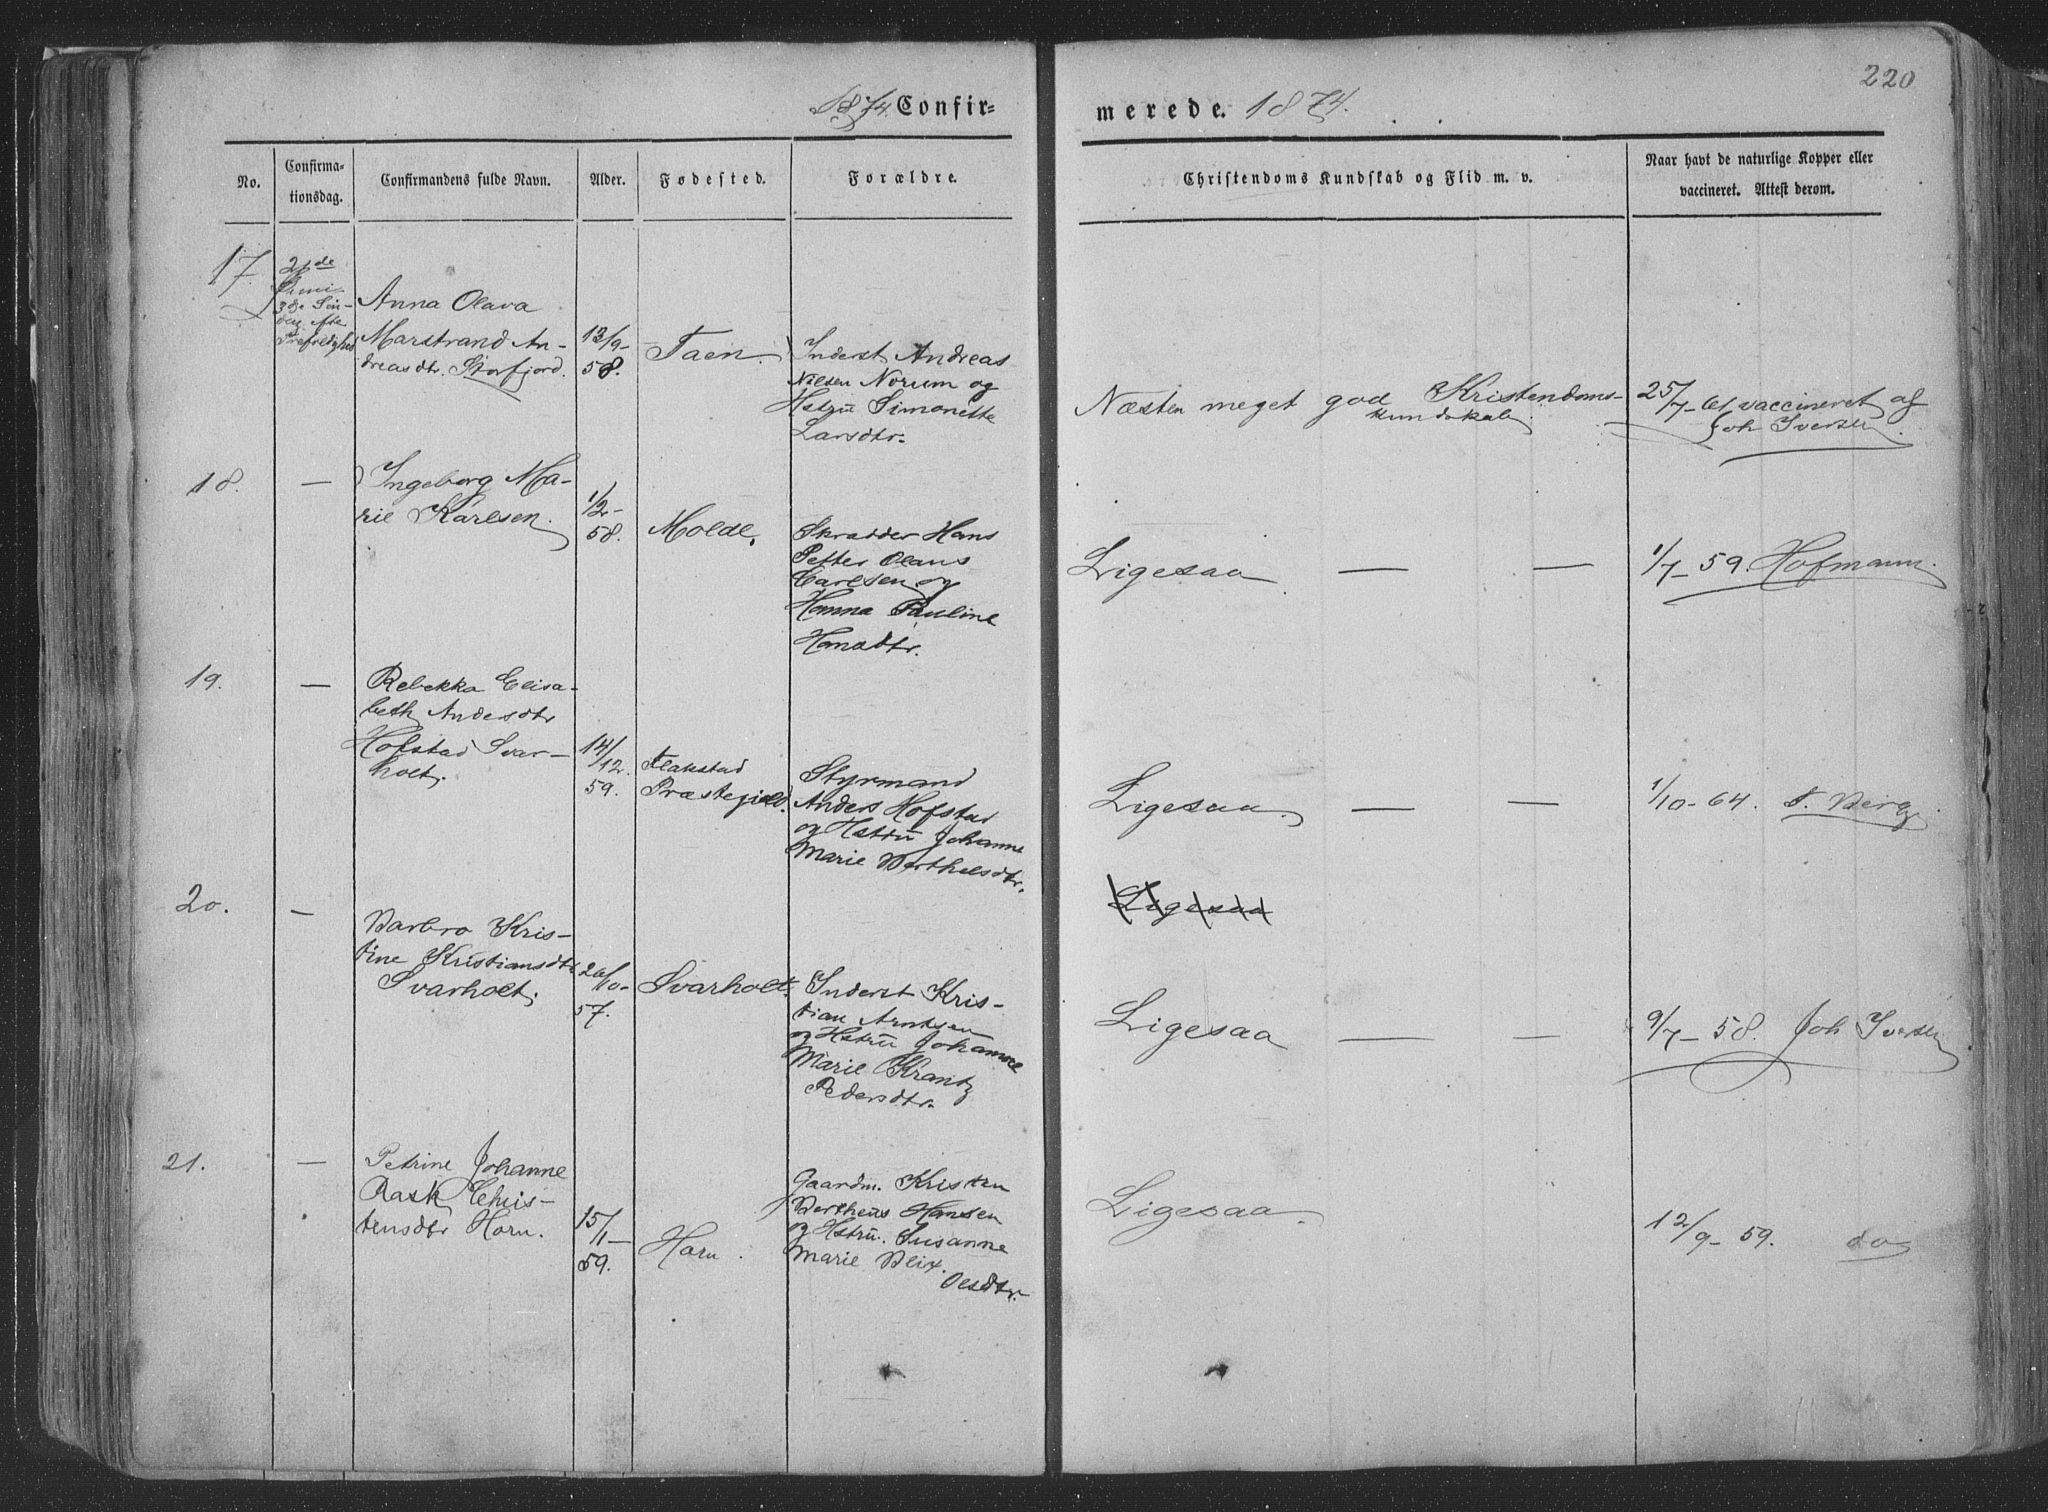 220
1874. Confir=
merede. 1874.
No.
Confirma-
tionsdag.
Confirmandens fulde Navn.
Alder.
Fødested.
Forældre.
Christendoms Kundskab og Flid m. v.
Naar havt de naturlige Kopper eller
vaccineret. Attest derom.
17.
21de
Juni
3die Søn-
dag efte
Trefoldighed
Anna Olava
Marstrand An-
dreasdtr. Storfjord.
13/9-
58.
Taen.
Inderst Andreas
Nilsen Norum og
Hstrū Simonette
Larsdtr.
Næsten meget god Kristendoms-
kundskab
25/7-61 vaccineret af
Joh Iversen
18.
—
Ingeborg Ma-
rie Karlsen.
1/2-
58.
Molde.
Skrædder Hans
Petter Olaus
Carlsen og
Hanna Pauline
Hansdtr.
Ligesaa — —
1/7-59. Hofmann.
19.
—
Rebekka Elisa-
beth Andersdtr
Hofstad Svar-
holt.
14/12.
59.
Flakstad
Præstegjeld.
Styrmand
Anders Hofstad
og Hstrū Johanne
Marie Berthelsdtr.
Ligesaa. — —
1/10-64. S. Berg.
20.
—
Barbro Kris-
tine Kristiansdtr
Svarholt.
26/10-
57.
Svarholt.
Inderst Kris-
tian Arntsen
og Hstrū Johanne
Marie Krantz
Pedersdtr.
Ligesaa
Ligesaa — —
9/7-58. Joh Iversen
21.
—
Petrine Johanne
Rask Chris-
tensdtr Horn.
15/1-
59.
Horn.
Gaardm. Kristen
Bertheus Hansen
og Hstrū. Susanne
Marie Blix.
Olsdtr.
Ligesaa.
12/9-59. do